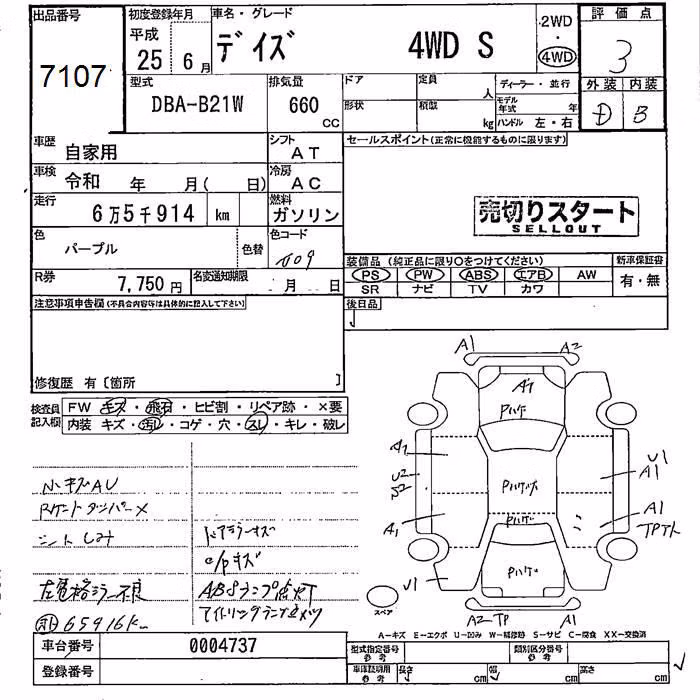 出品番号
7107
初度登録年月
平成
25年 6月
車名・グレード
デイズ 4WD S
2WD
・
4WD
評価点
3
外装 内装
D B
型式
DBA-B21W
排気量
660
CC
ドア
定員
人
形状
積載
kg
ディーラー・並行
モデル年式 年
ハンドル 左・右
車歴
自家用
シフト
AT
車検
令和 年 月( 日)
冷房
AC
走行
6万5千914 km
燃料
ガソリン
色
パープル
色替
色コード
R券
7,750円
名変通知期限
月 日
セールスポイント(正常に機能するものに限ります)
売切りスタート
SELLOUT
装備品(純正品に限り○をつけてください)
新車保証書
PS PW ABS エアB AW
SR ナビ TV カワ
有・無
後日品
注意事項申告欄(不具合内容等は具体的に記入して下さい)
修復歴 有〔箇所 〕
検査員記入欄
FW キズ・飛石・ヒビ割・リペア跡・×要
内装 キズ・汚れ・コゲ・穴・スレ・キレ・破レ
シートしみ
左電格ミラー不良
ABSランプ点灯
65916K
A1
A2
A1
U2
A1
U1
U1
A1
A1
A2 TP
A1
スペア
A-キズ E-エクボ U-凹み W-補修跡 S-サビ C-腐食 XX-交換済
車台番号
0004737
登録番号
型式指定番号
参考
類別区分番号
参考
車庫証明用
参考
長さ cm
幅 cm
高さ cm